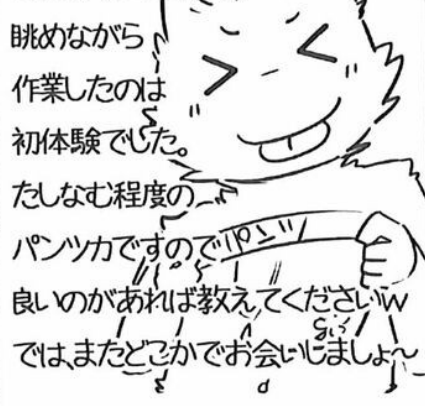 眺めながら
作業したのは
初体験でした。
たしなむ程度の
パンツカですので
パンツ
良いのがあれば教えてくださいw
では、またどこかでお会いしましょ〜